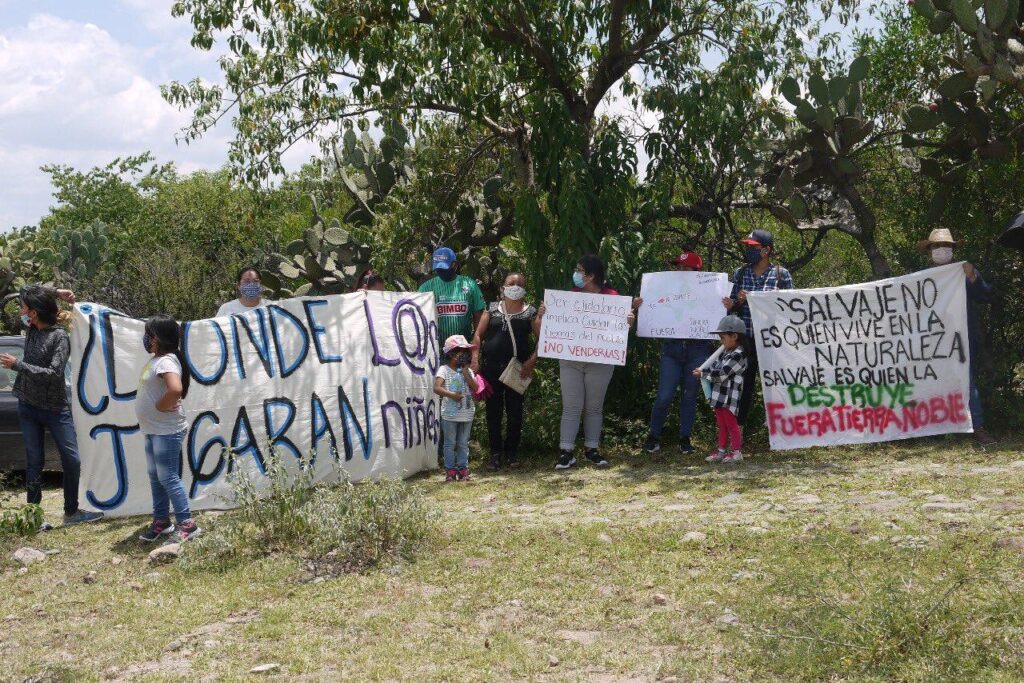 ¿DONDE L@S
JUGARAN niñes
BIMBO
Ser ejidatario
implica cuidar las
tierras del pueblo
¡NO VENDERLAS!
FUERA
"SALVAJE NO
ES QUIEN VIVE EN LA
NATURALEZA
SALVAJE ES QUIEN LA
DESTRUYE
FUERA TIERRA NOBLE